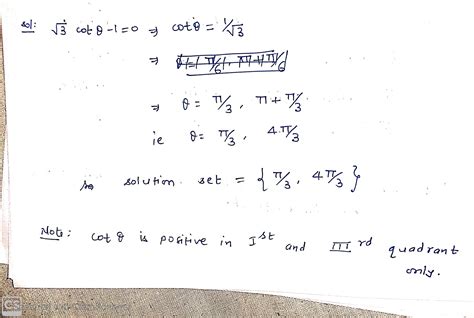 sol: √3 cot θ - 1 = 0 ⇒ cot θ = 1/√3
⇒
⇒ θ = π/3, π + π/3
ie θ = π/3, 4π/3
so solution set = {π/3, 4π/3}
Note: cot θ is positive in Ist and IIIrd quadrant only.
CS